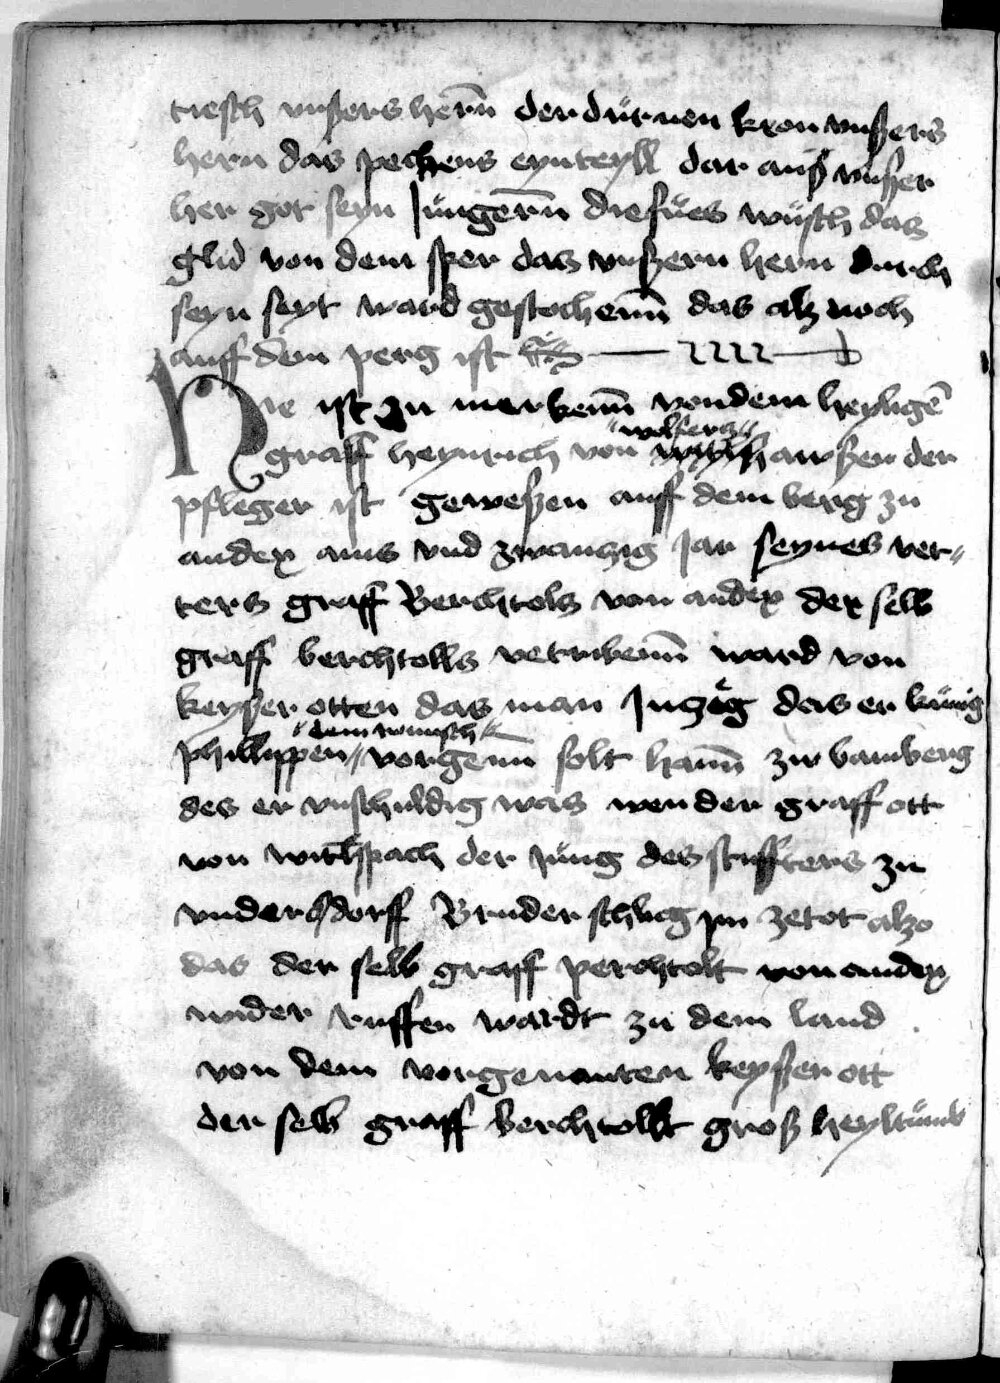 tiesch unßers hern̄ der dürnen kron unßers
hern das pechens eyn teyll dar auß unßer
her got seyn Jüngern̄ die fües wüsch das
glid von dem sper das unßern hern durch
seyn seyt ward gestochenn̄ das alz noch
auff dem perg ist
Hie ist zu merkenn̄ von dem heyligē
graff heynrich von wolfertz hawßen der
pfleger ist geweßen auff dem berg zu
andex ains und zwanczig Jar seynes vet-
ters graff Berchtols von andex der selb
graff berchtolls vetribenn̄ ward von
keyßer otten das man In zig das er künig
phillippen dem romisch vorgenn̄ solt hann̄ zw bamberg
des er unschuldig was wen der graff ott
von witlspach der jüng des stiffters zu
understorff Bruder schlug ym ze tot alzo
das der selb graff perchtolt von andex
wider ruffen wardt zu dem land
von dem vorgenanten keyßer ott
der selb graff berchtollt groß heyltümb